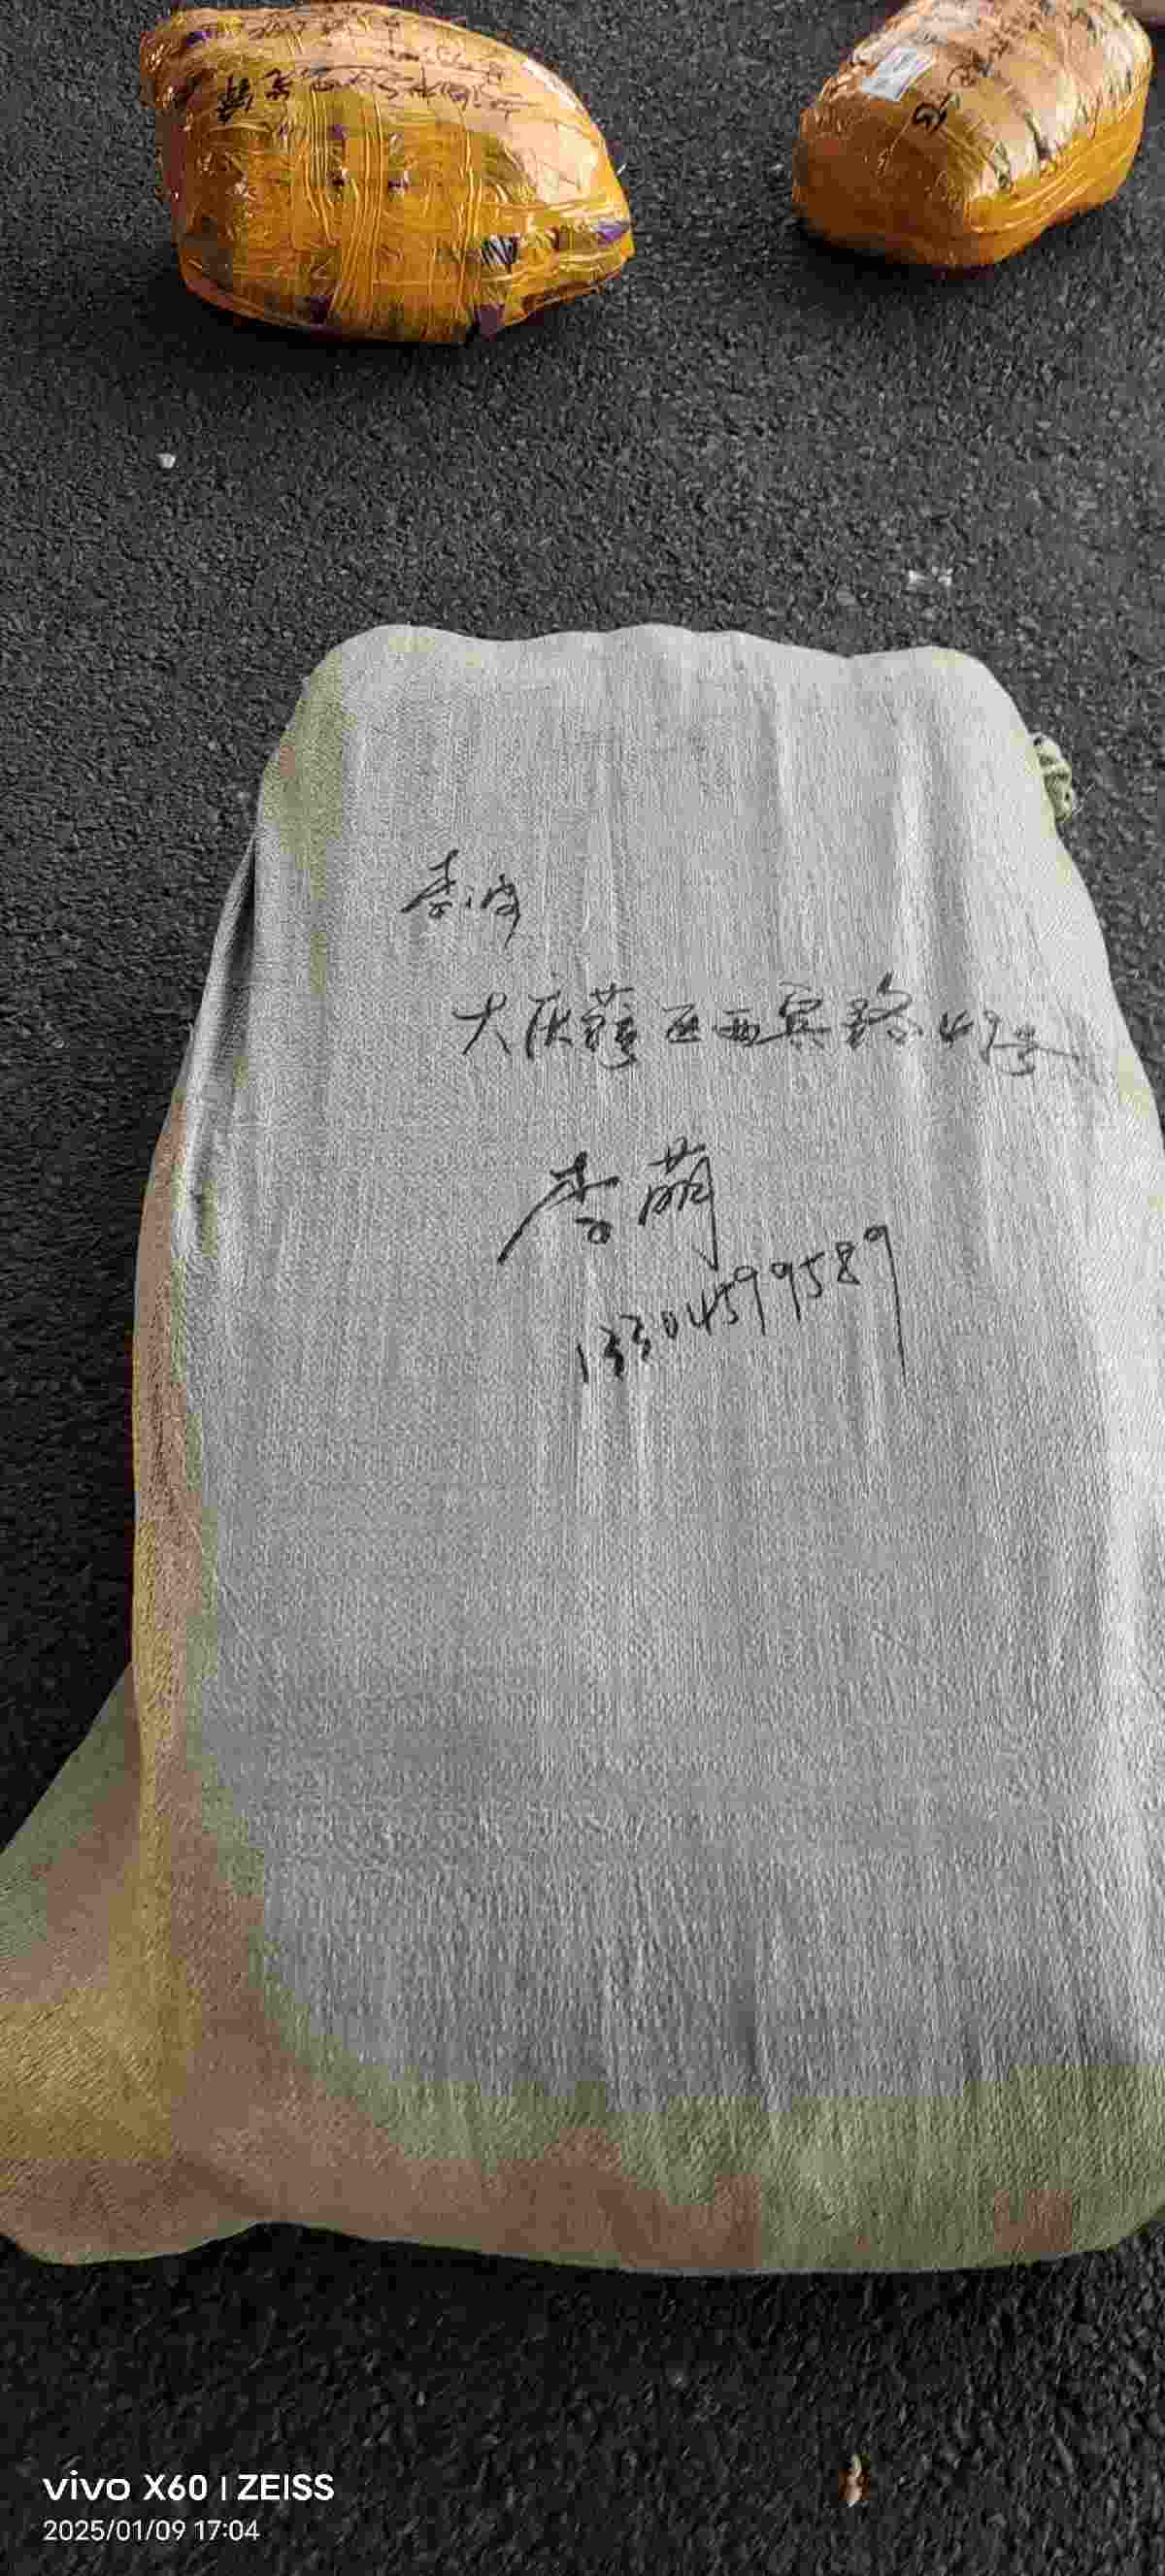 李波
大庆萨区西宾路49号
李萌
13304599589
vivo X60 | ZEISS
2025/01/09 17:04